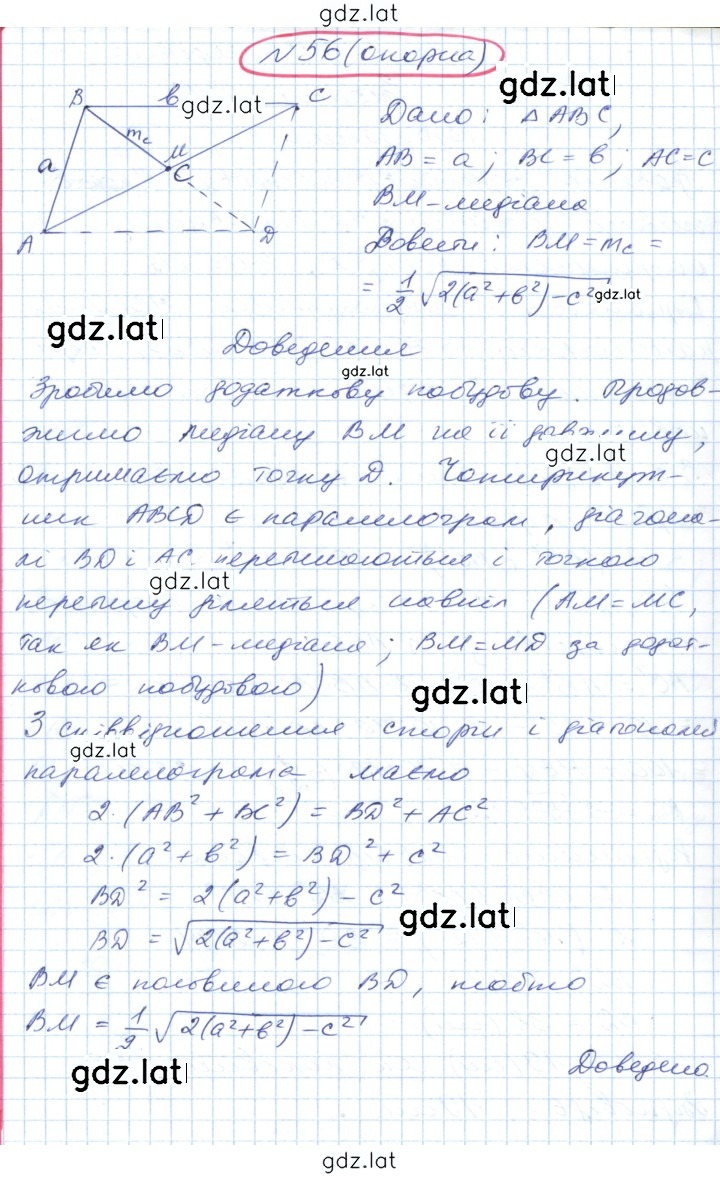 gdz.lat
№56 (опорна)
B
в
gdz.lat
C
gdz.lat
Дано: △ABC,
m_c
M
a
C
AB = a; BC = в; AC = c
BM - медіана
A
D
Довести: BM = m_c =
= 1/2 √(2(a² + в²) - c²)
gdz.lat
gdz.lat
Доведення
gdz.lat
Зробимо додаткову побудову. Продов-
жимо медіану BM на її довжину,
gdz.lat
отримаємо точку D. Чотирикут-
ник ABCD є паралелограм, діагона-
лі BD і AC перетинаються і точкою
gdz.lat
перетину діляться навпіл (AM = MC,
так як BM - медіана; BM = MD за додат-
ковою побудовою)
gdz.lat
З співвідношення сторін і діагоналей
gdz.lat
паралелограма маємо
2·(AB² + BC²) = BD² + AC²
2·(a² + в²) = BD² + c²
BD² = 2(a² + в²) - c²
gdz.lat
BD = √(2(a² + в²) - c²)
BM є половиною BD, тобто
BM = 1/2 √(2(a² + в²) - c²)
gdz.lat
Доведено.
gdz.lat